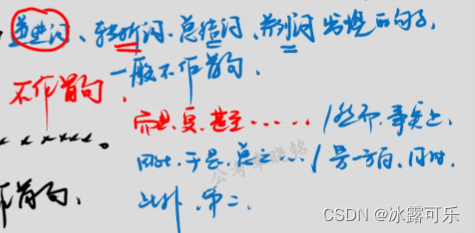 递进词、转折词、总结词、并列词 出现的句子,
一般不作首句.
不作首句.
而是、更、甚至…… / 然而、事实上、
因此、于是、总之… / 另一方面、同时、
×××××。
作首句.
此外、第二.
公考
CSDN @冰露可乐